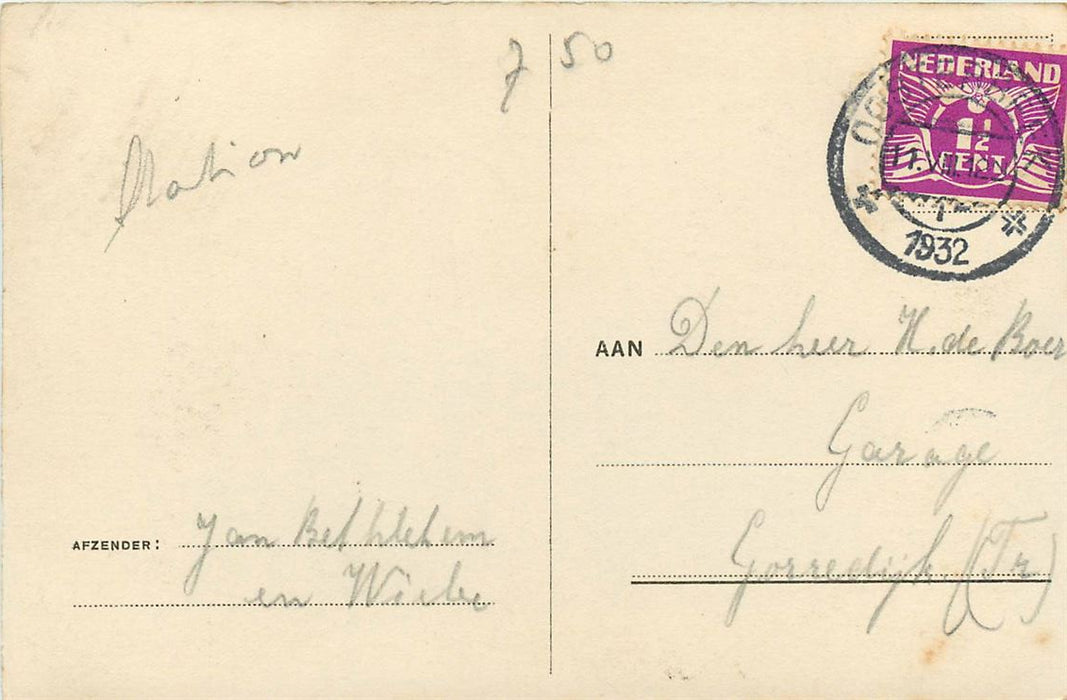 7 50
NEDERLAND
1½
CENT
1932
Station
AAN Den heer H. de Boer
Garage
Gorredijk (Fr)
AFZENDER: Jan Bethlehem
en Wiebe